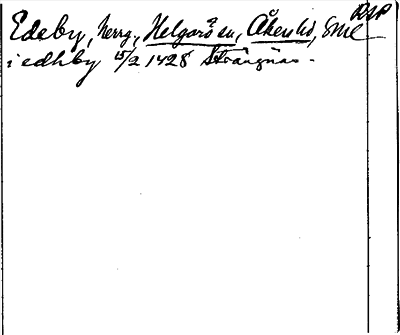 DSP
Edeby, herrg., Helgarö sn, Åkers hd, Sml
i edhby 15/2 1428 Strängnäs.